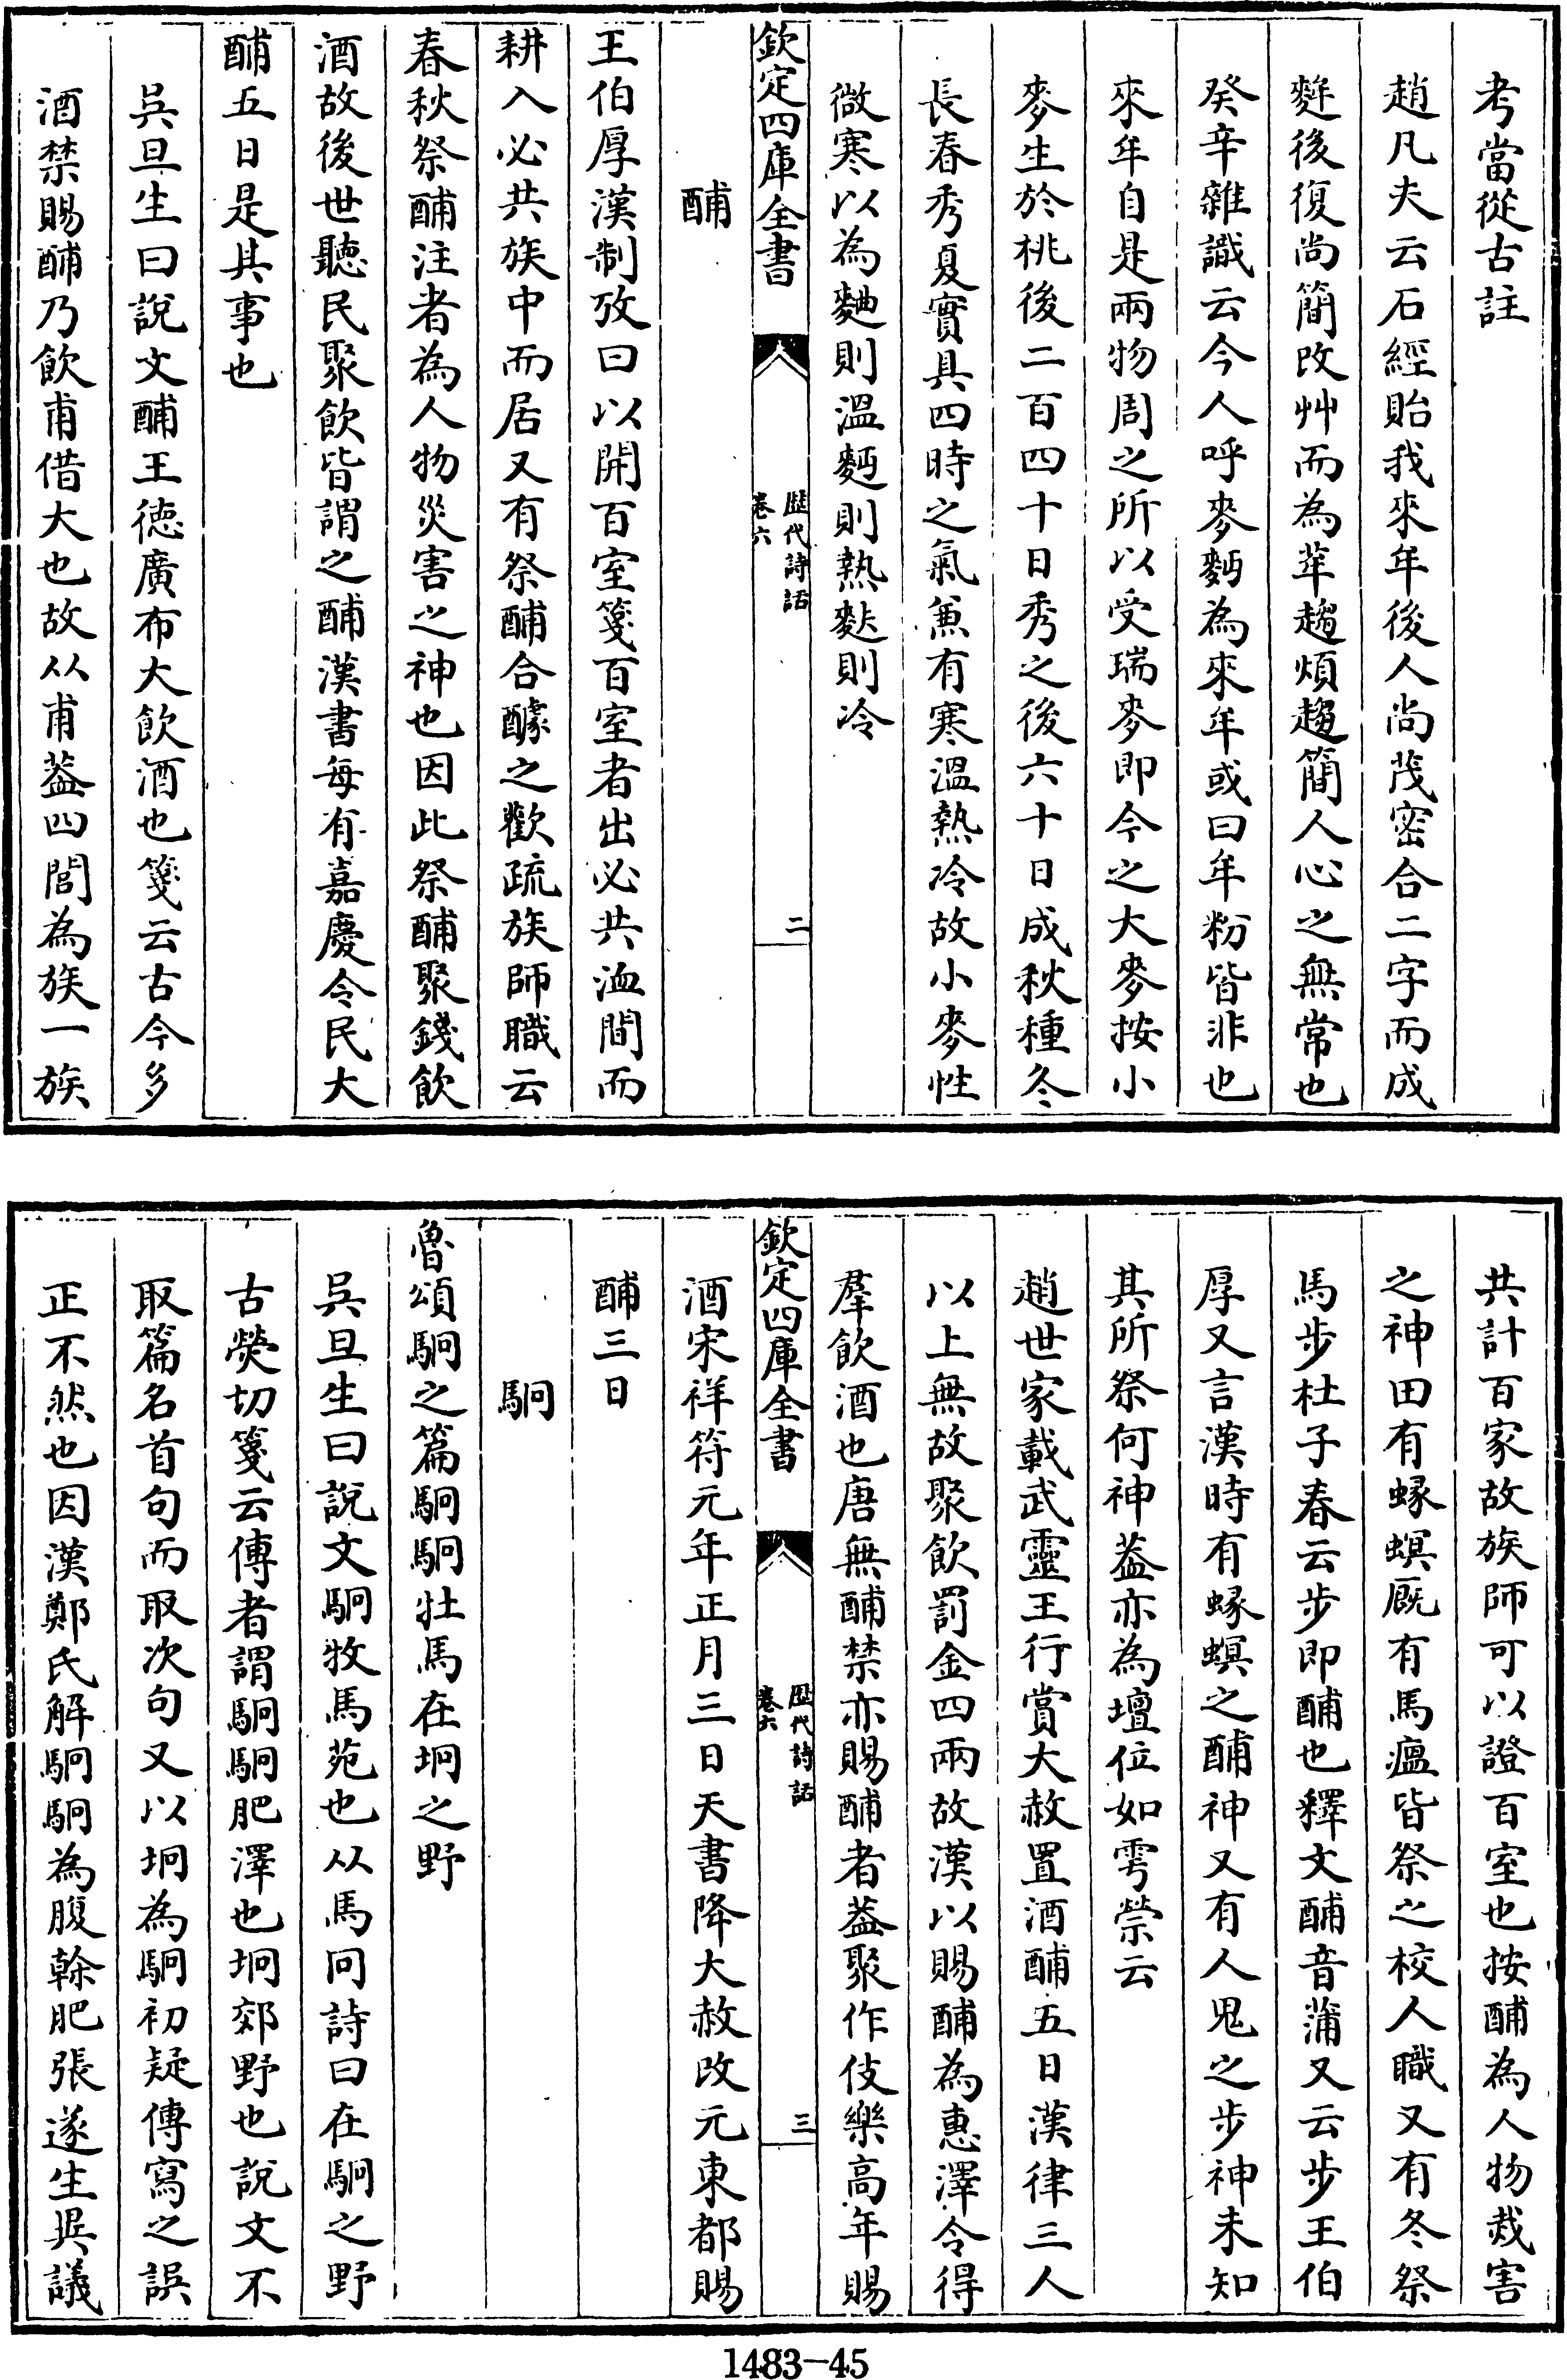 考當從古註
趙凡夫云石經貽我來年後人尚茂密合二字而成
麰後復尚簡改艸而為䍧趨煩趨簡人心之無常也
癸辛雜識云今人呼麥麪為來年或曰牟粉皆非也
來牟自是兩物周之所以受瑞麥即今之大麥按小
麥生於桃後二百四十日秀之後六十日成秋種冬
長春秀夏實具四時之氣兼有寒溫熱冷故小麥性
微寒以為麯則溫麪則熱麩則冷
欽定四庫全書
歷代詩話
卷六
二
酺
王伯厚漢制攷曰以開百室箋百室者出必共洫間而
耕入必共族中而居又有祭酺合醵之歡疏族師職云
春秋祭酺注者為人物災害之神也因此祭酺聚錢飲
酒故後世聽民聚飲皆謂之酺漢書每有嘉慶令民大
酺五日是其事也
吳旦生曰說文酺王德廣布大飲酒也箋云古今多
酒禁賜酺乃飲甫借大也故从甫葢四閭為族一族
共計百家故族師可以證百室也按酺為人物烖害
之神田有蝝螟厩有馬瘟皆祭之校人職又有冬祭
馬步杜子春云步即酺也釋文酺音蒲又云步王伯
厚又言漢時有蝝螟之酺神又有人鬼之步神未知
其所祭何神葢亦為壇位如雩禜云
趙世家載武靈王行賞大赦置酒酺五日漢律三人
以上無故聚飲罰金四兩故漢以賜酺為惠澤令得
羣飲酒也唐無酺禁亦賜酺者葢聚作伎樂高年賜
欽定四庫全書
歷代詩話
卷六
三
酒宋祥符元年正月三日天書降大赦改元東都賜
酺三日
駉
魯頌駉之篇駉駉牡馬在坰之野
吳旦生曰說文駉牧馬苑也从馬冋詩曰在駉之野
古熒切箋云傳者謂駉駉肥澤也坰郊野也說文不
取篇名首句而取次句又以坰為駉初疑傳寫之誤
正不然也因漢鄭氏解駉駉為腹榦肥張遂生異議
1483-45